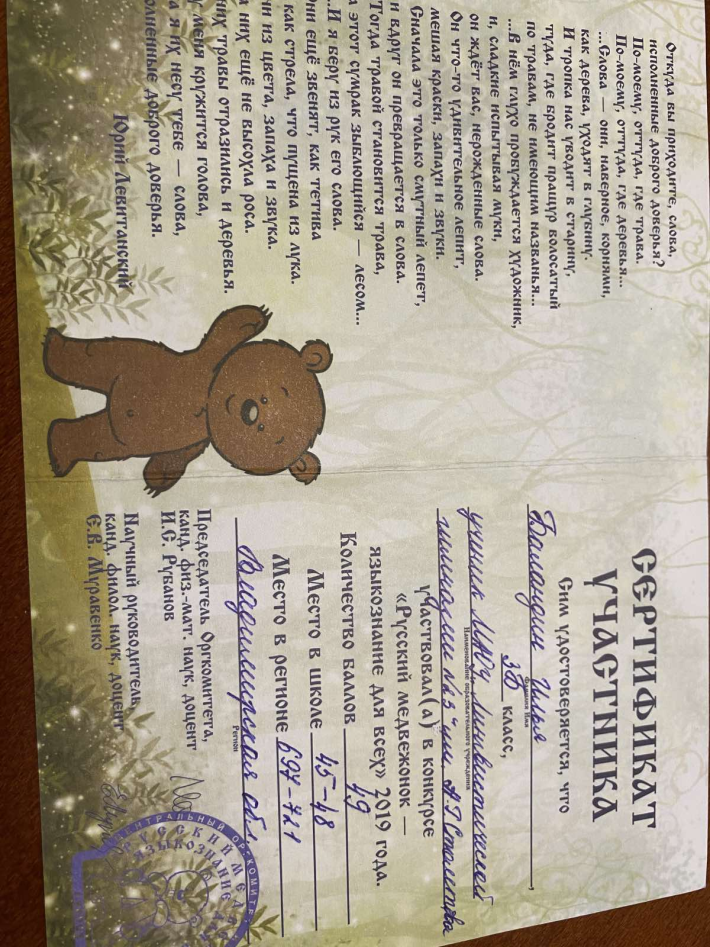 Откуда вы приходите, слова,
исполненные доброго доверья?
По-моему, оттуда, где трава.
По-моему, оттуда, где деревья...
...Слова — они, наверное, корнями,
как дерева, уходят в глубину.
И тропка нас уводит в старину,
туда, где бродит пращур волосатый
по травам, не имеющим названья...
...В нём глухо пробуждается художник,
и, сладкие испытывая муки,
он ждёт вас, нерожденные слова.
Он что-то удивительное лепит,
мешая краски, запахи и звуки.
Сначала это только смутный лепет,
и вдруг он превращается в слова.
Тогда травой становится трава,
а этот сумрак зыблющийся — лесом...
...И я беру из рук его слова.
Они ещё звенят, как тетива
как стрела, что пущена из лука.
они из цвета, запаха и звука.
На них ещё не высохла роса.
них травы отразились и деревья.
У меня кружится голова,
а я их несу тебе — слова,
полненные доброго доверья.
Юрий Левитанский
СЕРТИФИКАТ
УЧАСТНИКА
Сим удостоверяется, что
Баландин Илья
Фамилия Имя
3б класс,
ученик МАОУ Лингвистической
Наименование образовательного учреждения
гимназии №23 им. А.Г. Столетова
участвовал(а) в конкурсе
«Русский медвежонок —
языкознание для всех» 2019 года.
Количество баллов 49
Место в школе 45-48
Место в регионе 697-721
Владимирская обл.
Регион
Председатель Оргкомитета,
канд. физ.-мат. наук, доцент
И.С. Рубанов
Научный руководитель,
канд. филол. наук, доцент
Е.В. Муравенко
ЦЕНТРАЛЬНЫЙ ОРГКОМИТЕТ
РУССКИЙ МЕДВ
ЯЗЫКОЗНАНИЕ